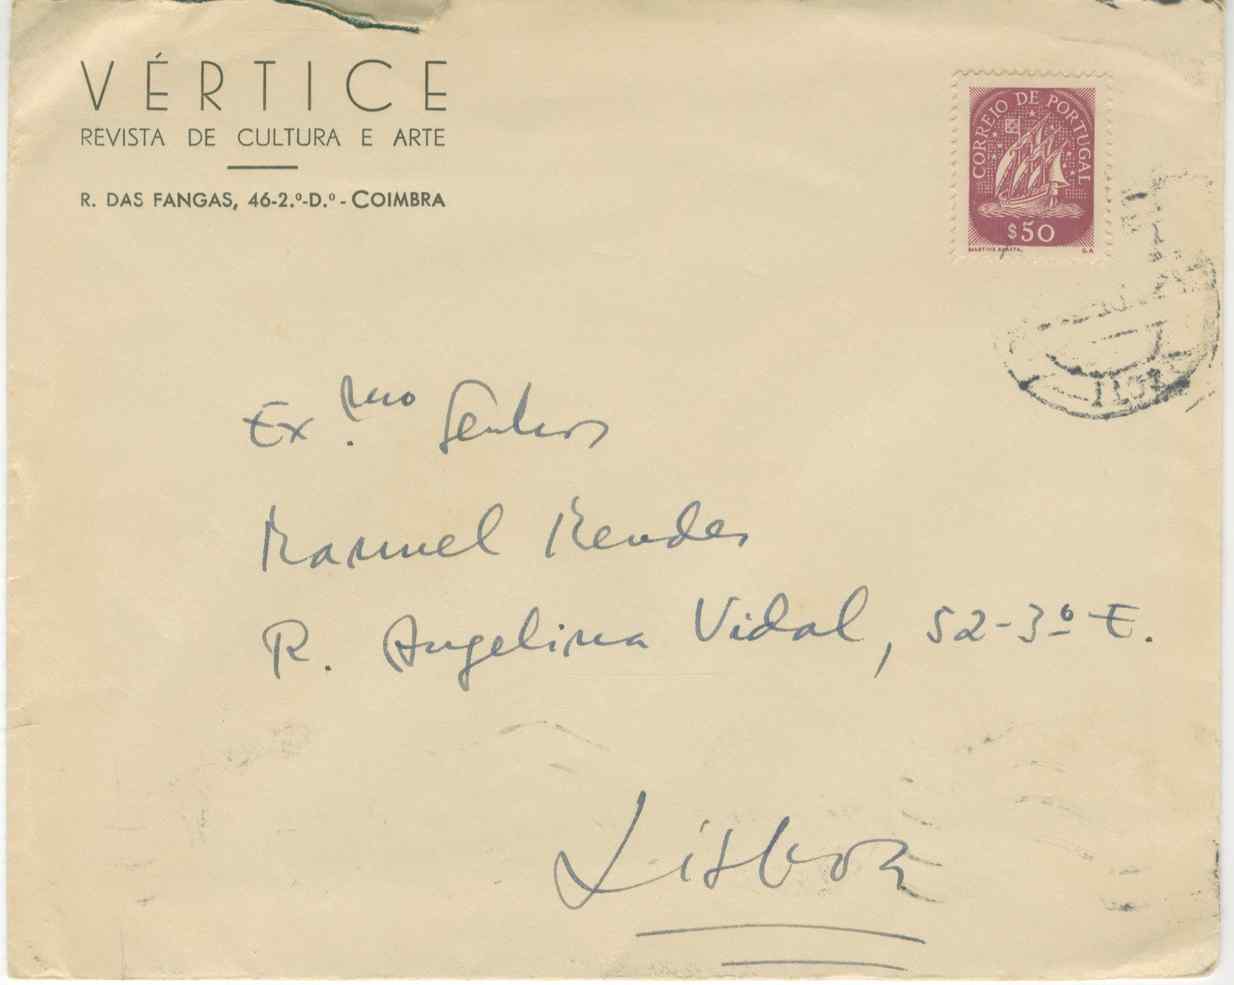 VÉRTICE
REVISTA DE CULTURA E ARTE
R. DAS FANGAS, 46-2.º-D.º - COIMBRA
CORREIO DE PORTUGAL
$50
Ex.mo Senhor
Manuel Mendes
R. Angelina Vidal, 52-3º E.
Lisboa